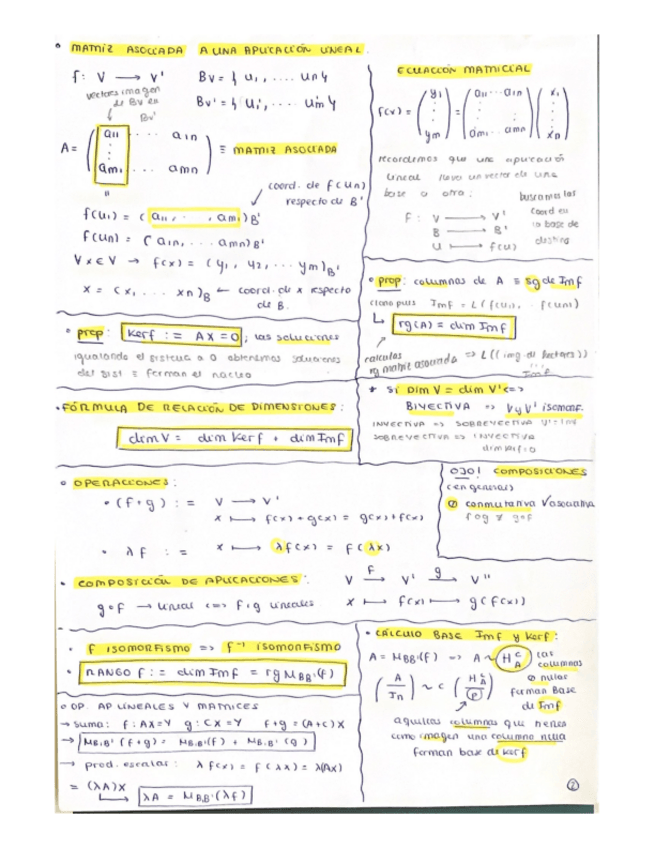 • MATRIZ ASOCIADA A UNA APLICACIÓN LINEAL.
f: V → V' Bv = { u1, .... un }
vectores imagen de Bv en Bv' Bv' = { u1', .... um' }
A = ( a11 ... a1n
⋮
am1 ... amn ) ≡ MATRIZ ASOCIADA
coord. de f(un) respecto de B'
f(u1) = ( a11, . . , am1 )B'
f(un) = ( a1n, ... amn )B'
∀x∈V → f(x) = ( y1, y2, ... ym )B'
x = ( x1, ... xn )B ← coord. de x respecto de B.
• prop: Kerf := AX = 0; las soluciones
igualando el sistema a 0 obtenemos soluciones
del sist ≡ forman el núcleo
• FÓRMULA DE RELACIÓN DE DIMENSIONES:
dimV = dim Kerf + dim Imf
ECUACIÓN MATRICIAL
f(x) = ( y1 ⋮ ym ) = ( a11 ... a1n ⋮ am1 ... amn ) ( x1 ⋮ xn )
recordemos que una aplicación
lineal lleva un vector de una
base a otra:
buscamos las coord en la base de destino
F: V → V'
B → B'
u ↦ f(u)
• prop: columnas de A ≡ sg de Imf
Imf = L( f(u1), . f(un) )
↳ rg(A) = dim Imf
calculas rg matriz asociada => L((img. de vectores))
Imf
* Si DIM V = dim V' <=>
BIYECTIVA => V y V' isomorf.
INYECTIVA => SOBREYECTIVA V'=Imf
SOBREYECTIVA => INYECTIVA
dimKerf=0
• OPERACIONES:
• (f+g) := V → V'
x ↦ f(x) + g(x) = g(x) + f(x)
• λf := x ↦ λf(x) = f(λx)
OJO! COMPOSICIONES
(en general)
∅ conmutativa ✓asociativa
fog ≠ gof
• COMPOSICIÓN DE APLICACIONES: V →f V' →g V''
gof → lineal <=> f i g lineales x ↦ f(x) ↦ g(f(x))
• f ISOMORFISMO => f⁻¹ ISOMORFISMO
• RANGO f := dim Imf = rg MBB'(f)
• OP. AP LINEALES Y MATRICES
→ suma: f: AX=Y g: CX=Y f+g = (A+C)X
→ MB,B' (f+g) = MB,B'(f) + MB,B' (g)
→ prod. escalar: λ f(x) = f(λx) = λ(Ax)
= (λA)X
↳ λA = MB,B'(λf)
• CÁLCULO BASE Imf y Kerf:
A = MBB'(f) => A ~ HAc las columnas
( A / In ) ~c ( HAc / P ) ∅ nulas
forman Base
de Imf
aquellas columnas que tienen
como imagen una columna nula
forman base de Kerf
2